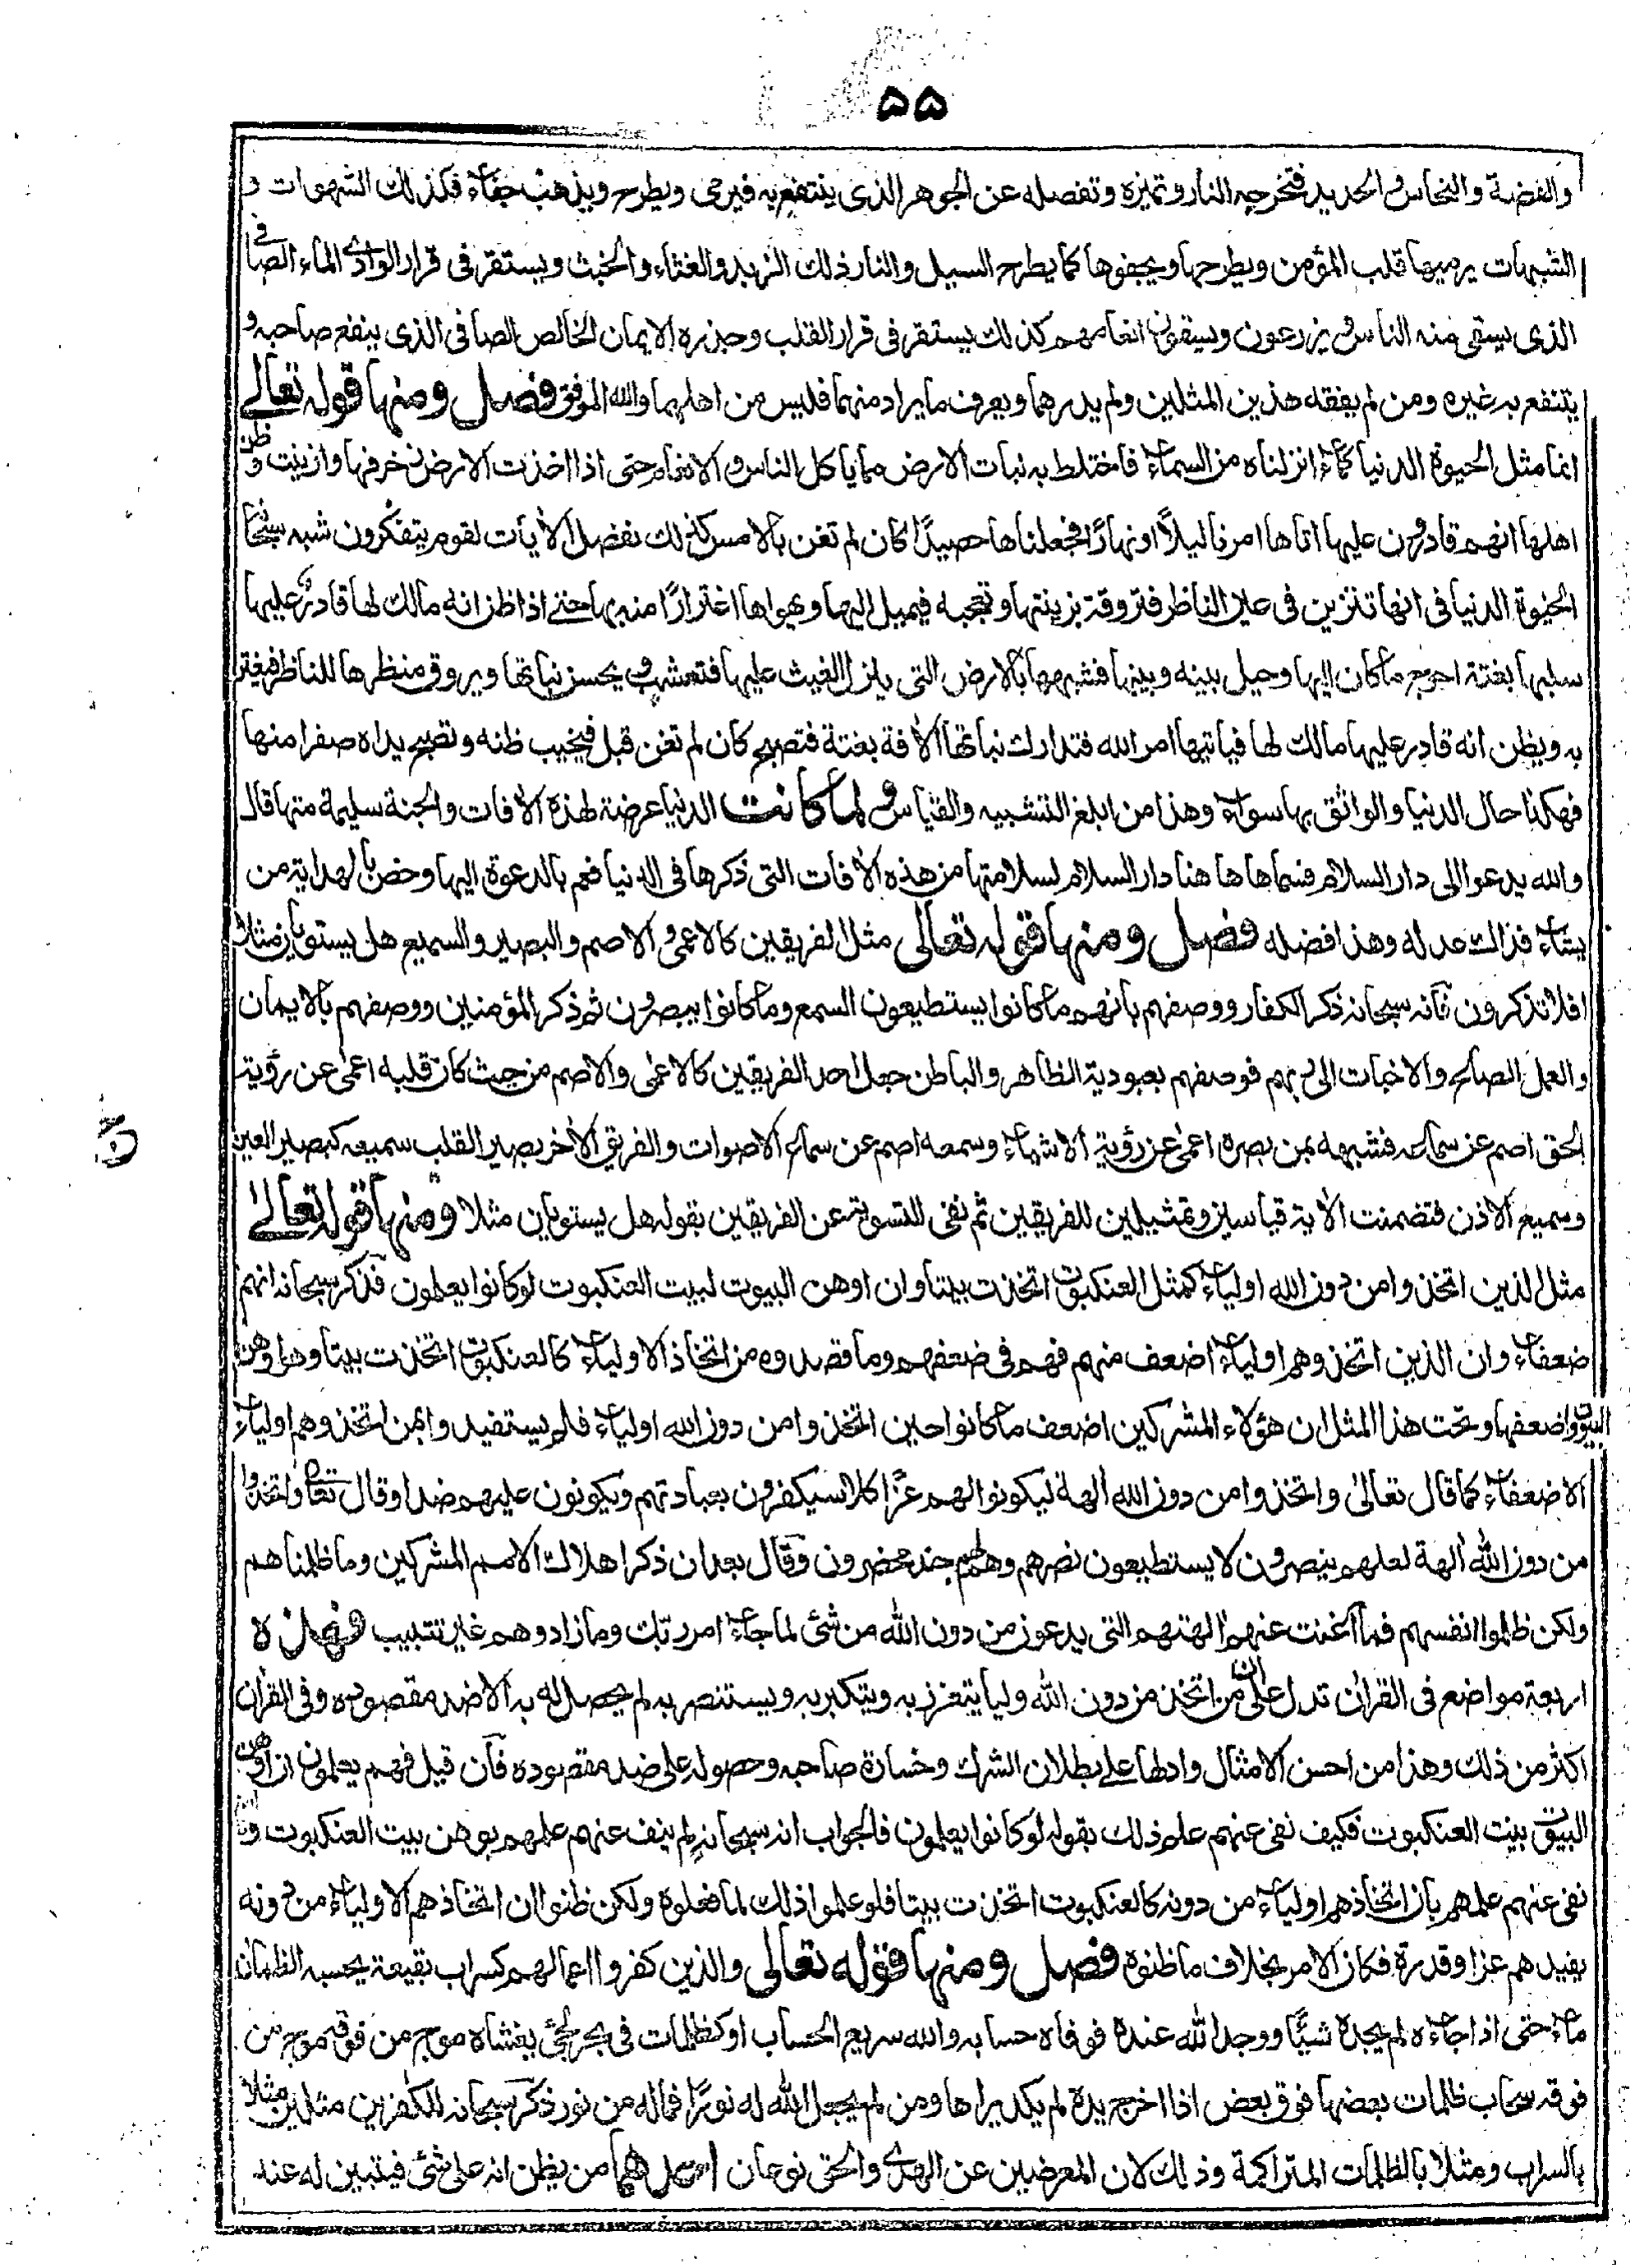 ۵۵
والفضة والنحاس والحديد فتخرجه النار وتميزه وتفصله عن الجوهر الذى ينتفع به فيرمى ويطرح ويذهب جفاء فكذلك الشهوات و
الشبهات يرميها قلب المؤمن ويطرحها ويجفوها كما يطرح السيل والنار ذلك الزبد والغثاء والخبث ويستقر فى قرار الوادى الماء الصافى
الذى يسقى منه الناس ويزرعون ويسقون انعامهم كذلك يستقر فى قرار القلب وجذره الايمان الخالص الصافى الذى ينفع صاحبه و
ينتفع به غيره ومن لم يفقه هذين المثلين ولم يدبرهما ويعرف ما يراد منهما فليس من اهلهما والله الموفق فصل ومنها قوله تعالى
انما مثل الحيوة الدنيا كماء انزلناه من السماء فاختلط به نبات الارض مما ياكل الناس والانعام حتى اذا اخذت الارض زخرفها وازينت وظن
اهلها انهم قادرون عليها اتاها امرنا ليلاً او نهارًا فجعلناها حصيدًا كان لم تغن بالامس كذلك نفصل الآيات لقوم يتفكرون شبه سبحانه
الحيوة الدنيا فى انها تتزين فى عين الناظر فتروقه بزينتها وتعجبه فيميل اليها ويهواها اغترارًا منه بها حتى اذا ظن انه مالك لها قادر عليها
سلبها بغتة احوج ما كان اليها وحيل بينه وبينها فشبهها بالارض التى ينزل الغيث عليها فتعشب ويحسن نباتها ويروق منظرها للناظر فيغتر
به ويظن انه قادر عليها مالك لها فياتيها امر الله فتدارك نباتها الآفة بغتة فتصبح كان لم تغن قبل فيخيب ظنه وتصبح يداه صفرا منها
فهكذا حال الدنيا والواثق بها سواء وهذا من ابلغ التشبيه والقياس ولما كانت الدنيا عرضة لهذه الآفات والجنة سليمة منها قال
والله يدعوا الى دار السلام فسماها هنا دار السلام لسلامتها من هذه الآفات التى ذكرها فى الدنيا فعم بالدعوة اليها وخص بالهداية من
يشاء فذاك عدله وهذا فضله فصل ومنها قوله تعالى مثل الفريقين كالاعمى والاصم والبصير والسميع هل يستويان مثلا
افلا تذكرون فانه سبحانه ذكر الكفار ووصفهم بانهم ما كانوا يستطيعون السمع وما كانوا يبصرون ثم ذكر المؤمنين ووصفهم بالايمان
والعمل الصالح والاخبات الى ربهم فوصفهم بعبودية الظاهر والباطن جعل احد الفريقين كالاعمى والاصم من حيث كان قلبه اعمى عن رؤية
الحق اصم عن سماعه فشبهه بمن بصره اعمى عن رؤية الاشياء وسمعه اصم عن سماع الاصوات والفريق الآخر بصير القلب سميعه كبصير العين
وسميع الاذن فتضمنت الآية قياسين وتمثيلين للفريقين ثم نفى التسوية عن الفريقين بقوله هل يستويان مثلا ومنها قوله تعالى
مثل الذين اتخذوا من دون الله اولياء كمثل العنكبوت اتخذت بيتا وان اوهن البيوت لبيت العنكبوت لو كانوا يعلمون فذكر سبحانه انهم
ضعفاء وان الذين اتخذوهم اولياء اضعف منهم فهم فى ضعفهم وما قصدوه من اتخاذ الاولياء كالعنكبوت اتخذت بيتا وهو اوهن
البيوت واضعفها وتحت هذا المثل ان هؤلاء المشركين اضعف ما كانوا حين اتخذوا من دون الله اولياء فلم يستفيدوا بمن اتخذوهم اولياء
الا ضعفاء كما قال تعالى واتخذوا من دون الله آلهة ليكونوا لهم عزًا كلا سيكفرون بعبادتهم ويكونون عليهم ضدا وقال تعالى واتخذوا
من دون الله آلهة لعلهم ينصرون لا يستطيعون نصرهم وهم لهم جند محضرون وقال بعد ان ذكر اهلاك الامم المشركين وما ظلمناهم
ولكن ظلموا انفسهم فما اغنت عنهم آلهتهم التى يدعون من دون الله من شئ لما جاء امر ربك وما زادوهم غير تتبيب فهذه
اربعة مواضع فى القرآن تدل على ان من اتخذ من دون الله وليا يتعزز به ويتكبر به ويستنصر به لم يحصل له به الا ضد مقصوده وفى القرآن
اكثر من ذلك وهذا من احسن الامثال وادلها على بطلان الشرك وخسارة صاحبه وحصوله على ضد مقصوده فان قيل فهم يعلمون ان اوهن
البيوت بيت العنكبوت فكيف نفى عنهم علم ذلك بقوله لو كانوا يعلمون فالجواب انه سبحانه لم ينف عنهم علمهم بوهن بيت العنكبوت وانما
نفى عنهم علمهم بان اتخاذهم اولياء من دونه كالعنكبوت اتخذت بيتا فلو علموا ذلك لما فعلوه ولكن ظنوا ان اتخاذهم الاولياء من دونه
يفيدهم عزا وقدرة فكان الامر بخلاف ما ظنوه فصل ومنها قوله تعالى والذين كفروا اعمالهم كسراب بقيعة يحسبه الظمان
ماء حتى اذا جاءه لم يجده شيئًا ووجد الله عنده فوفاه حسابه والله سريع الحساب او كظلمات فى بحر لجى يغشاه موج من فوقه موج من
فوقه سحاب ظلمات بعضها فوق بعض اذا اخرج يده لم يكد يراها ومن لم يجعل الله له نورًا فما له من نور ذكر سبحانه للكفرين مثلين مثلا
بالسراب ومثلا بالظلمات المتراكمة وذلك لان المعرضين عن الهدى والحق نوعان احدهما من يظن انه على شئ فيتبين له عند